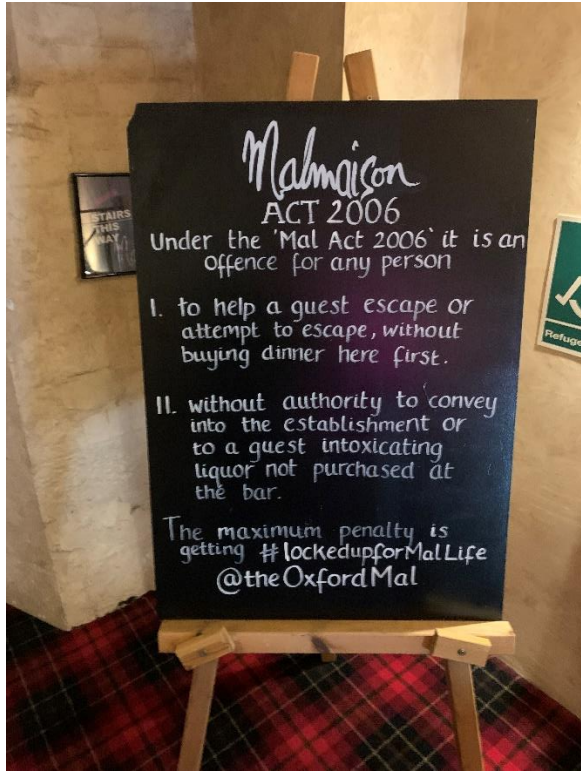 Malmaison
ACT 2006
Under the 'Mal Act 2006' it is an
offence for any person
I. to help a guest escape or
attempt to escape, without
buying dinner here first.
II. without authority to convey
into the establishment or
to a guest intoxicating
liquor not purchased at
the bar.
The maximum penalty is
getting #lockedupforMalLife
@theOxfordMal
STAIRS
THIS
WAY
Refuge